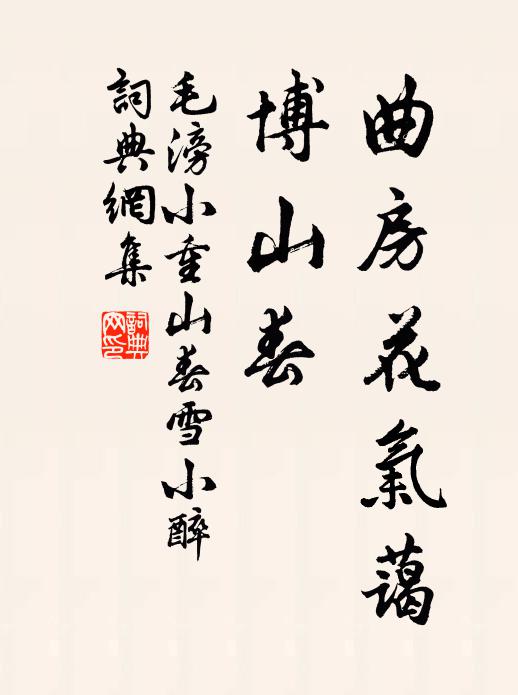 曲房花氣藹
博山春
毛滂小重山春雪小醉
詞典網集
詞典網印